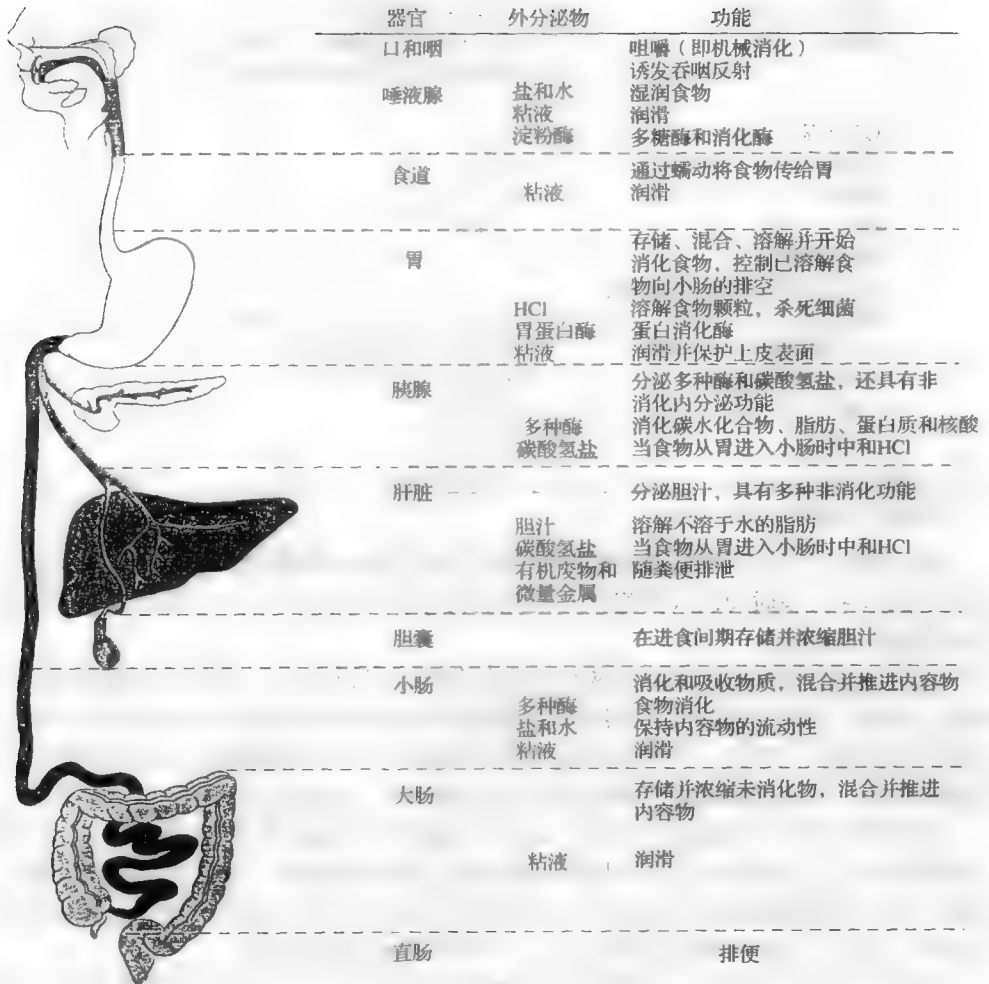 器官 外分泌物 功能
口和咽 咀嚼（即机械消化）
诱发吞咽反射
唾液腺 盐和水 湿润食物
粘液 润滑
淀粉酶 多糖酶和消化酶
食道 通过蠕动将食物传给胃
粘液 润滑
存储、混合、溶解并开始
胃 消化食物，控制已溶解食
物向小肠的排空
HCl 溶解食物颗粒，杀死细菌
胃蛋白酶 蛋白消化酶
粘液 润滑并保护上皮表面
胰腺 分泌多种酶和碳酸氢盐，还具有非
消化内分泌功能
多种酶 消化碳水化合物、脂肪、蛋白质和核酸
碳酸氢盐 当食物从胃进入小肠时中和HCl
肝脏 分泌胆汁，具有多种非消化功能
胆汁 溶解不溶于水的脂肪
碳酸氢盐 当食物从胃进入小肠时中和HCl
有机废物和 随粪便排泄
微量金属
胆囊 在进食间期存储并浓缩胆汁
小肠 消化和吸收物质，混合并推进内容物
多种酶 食物消化
盐和水 保持内容物的流动性
粘液 润滑
大肠 存储并浓缩未消化物，混合并推进
内容物
粘液 润滑
直肠 排便